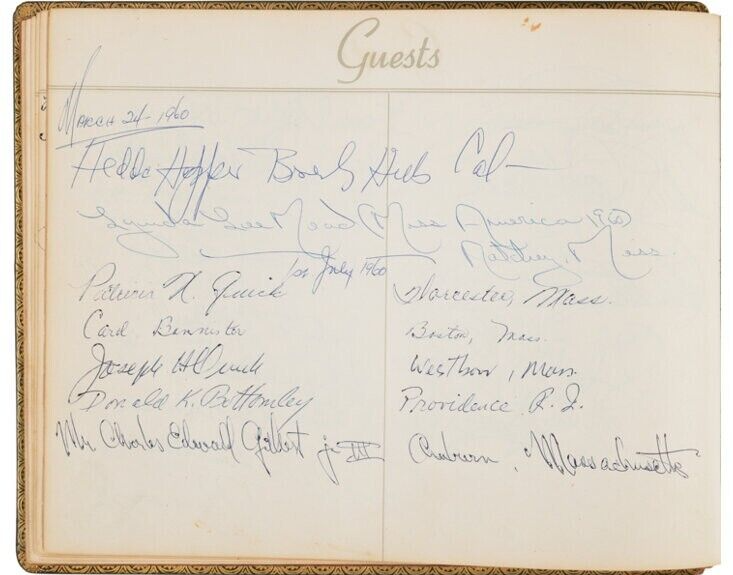 Guests
March 24 - 1960
Hedda Hopper Beverly Hills Cal
Lynda Lee Mead Miss America 1960
Natchez, Miss.
1st July 1960
Patricia N. Quick Worcester, Mass.
Carol Bannister Boston, Mass.
Joseph H Quick Westboro, Mass.
Donald K. Bottomley Providence R.I.
Mr. Charles Edward Gilbert jr III Auburn, Massachusetts